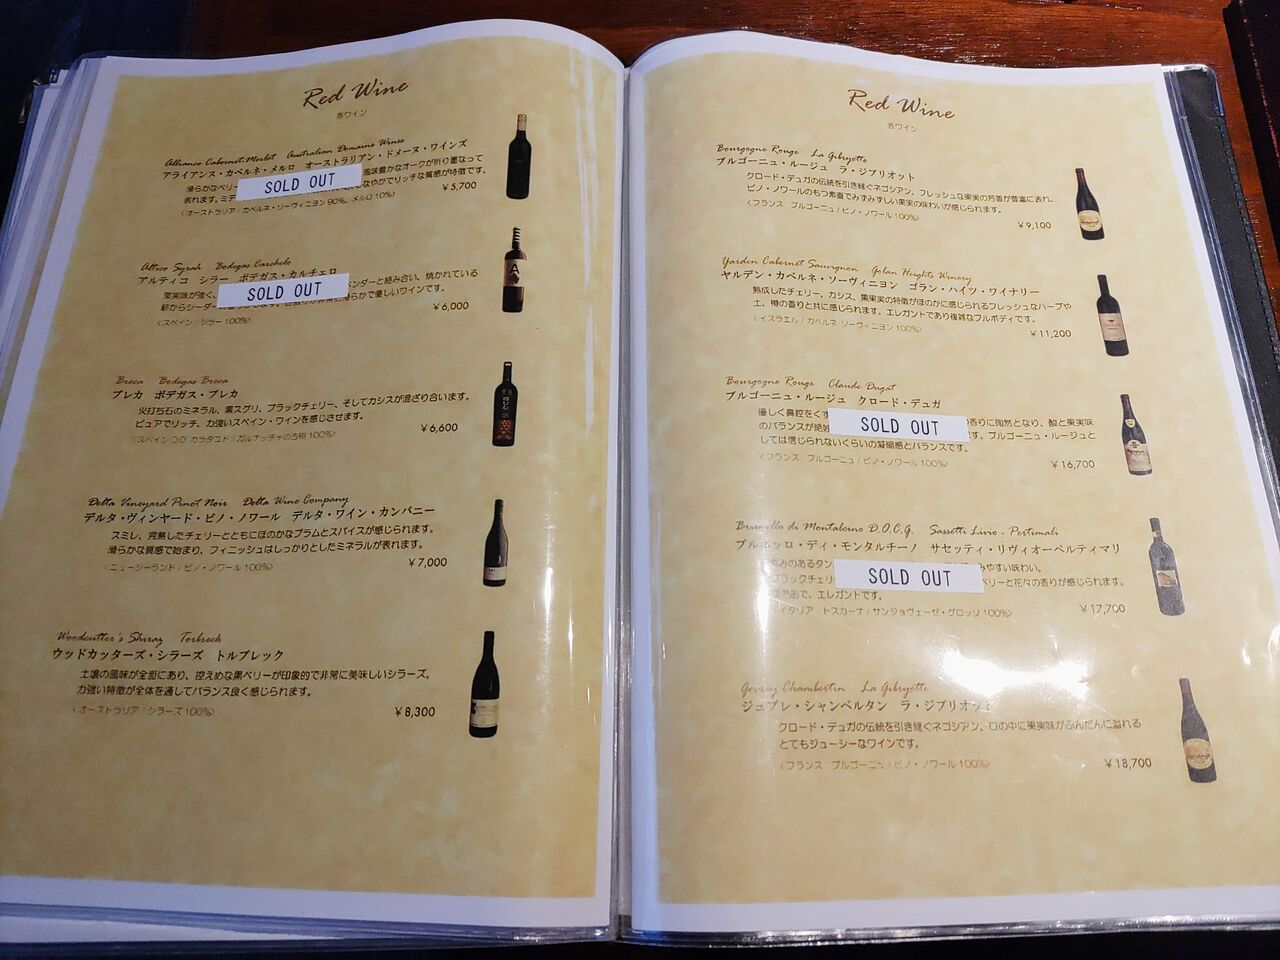 Red Wine
赤ワイン
Alliance Cabernet-Merlot Australian Domaine Wines
アライアンス・カベルネ・メルロ オーストラリアン・ドメーヌ・ワインズ
滑らかなベリー 風味豊かなオークが折り重なって
SOLD OUT
表れます。ミデ しなやかでリッチな質感が特徴です。
¥5,700
〈オーストラリア / カベルネ・ソーヴィニヨン 90%、メルロ 10%〉
Altico Syrah Bodegas Carchelo
アルティコ シラー ボデガス・カルチェロ
果実味が強く、 ベンダーと絡み合い、焼かれている
SOLD OUT
薪からシーダー で優しいワインです。
¥6,000
〈スペイン / シラー 100%〉
Breca Bodegas Breca
ブレカ ボデガス・ブレカ
火打ち石のミネラル、黒スグリ、ブラックチェリー、そしてカシスが混ざり合います。
ピュアでリッチ、力強いスペイン・ワインを感じさせます。
〈スペイン D.O. カラタユド / ガルナッチャの古樹 100%〉
¥6,600
Delta Vineyard Pinot Noir Delta Wine Company
デルタ・ヴィンヤード・ピノ・ノワール デルタ・ワイン・カンパニー
スミレ、完熟したチェリーとともにほのかなプラムとスパイスが感じられます。
滑らかな質感で始まり、フィニッシュはしっかりとしたミネラルが表れます。
〈ニュージーランド / ピノ・ノワール 100%〉
¥7,000
Woodcutter's Shiraz Torbreck
ウッドカッターズ・シラーズ トルブレック
土壌の風味が全面にあり、控えめな黒ベリーが印象的で非常に美味しいシラーズ。
力強い特徴が全体を通してバランス良く感じられます。
〈オーストラリア / シラーズ 100%〉
¥8,300
Red Wine
赤ワイン
Bourgogne Rouge La Gibryotte
ブルゴーニュ・ルージュ ラ・ジブリオット
クロード・デュガの伝統を引き継ぐネゴシアン。フレッシュな果実の芳香が豊富に表れ、
ピノ・ノワールのもつ素直でみずみずしい果実の味わいが感じられます。
〈フランス ブルゴーニュ / ピノ・ノワール 100%〉
¥9,100
Yarden Cabernet Sauvignon Golan Heights Winery
ヤルデン・カベルネ・ソーヴィニヨン ゴラン・ハイツ・ワイナリー
熟成したチェリー、カシス、黒果実の特徴がほのかに感じられるフレッシュなハーブや
土、樽の香りと共に感じられます。エレガントであり複雑なフルボディです。
〈イスラエル / カベルネ・ソーヴィニヨン 100%〉
¥11,200
Bourgogne Rouge Claude Dugat
ブルゴーニュ・ルージュ クロード・デュガ
優しく鼻腔をくす の香りに陶然となり、酸と果実味
SOLD OUT
のバランスが絶妙 す。ブルゴーニュ・ルージュと
しては信じられないくらいの凝縮感とバランスです。
〈フランス ブルゴーニュ / ピノ・ノワール 100%〉
¥16,700
Brunello di Montalcino D.O.C.G. Sassetti Livio - Pertimali
ブルネッロ・ディ・モンタルチーノ サセッティ・リヴィオーペルティマリ
みのあるタン みやすい味わい。
SOLD OUT
ブラックチェリー ベリーと花々の香りが感じられます。
的で、エレガントです。
イタリア トスカーナ / サンジョヴェーゼ・グロッソ 100%〉
¥17,700
Gevrey Chambertin La Gibryotte
ジュブレ・シャンベルタン ラ・ジブリオット
クロード・デュガの伝統を引き継ぐネゴシアン、口の中に果実味がふんだんに溢れる
とてもジューシーなワインです。
〈フランス ブルゴーニュ / ピノ・ノワール 100%〉
¥18,700